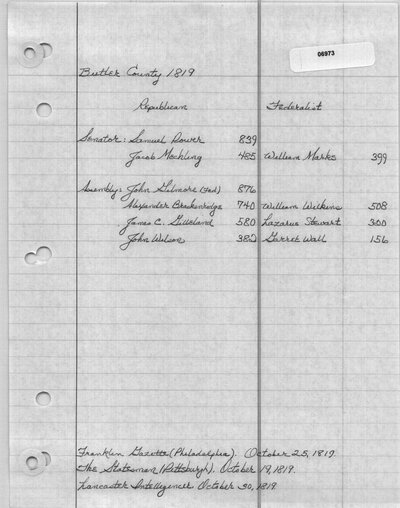 06973
Butler County 1819
Republican Federalist
Senator: Samuel Power 839
Jacob Mechling 485 William Marks 399
Assembly: John Gilmore (Fed) 876
Alexander Brackenridge 740 William Wilkins 508
James C. Gilleland 580 Lazarus Stewart 300
John Wilson 382 Garret Wall 156
Franklin Gazette (Philadelphia). October 25, 1819.
The Statesman (Pittsburgh). October 19, 1819.
Lancaster Intelligencer October 30, 1819